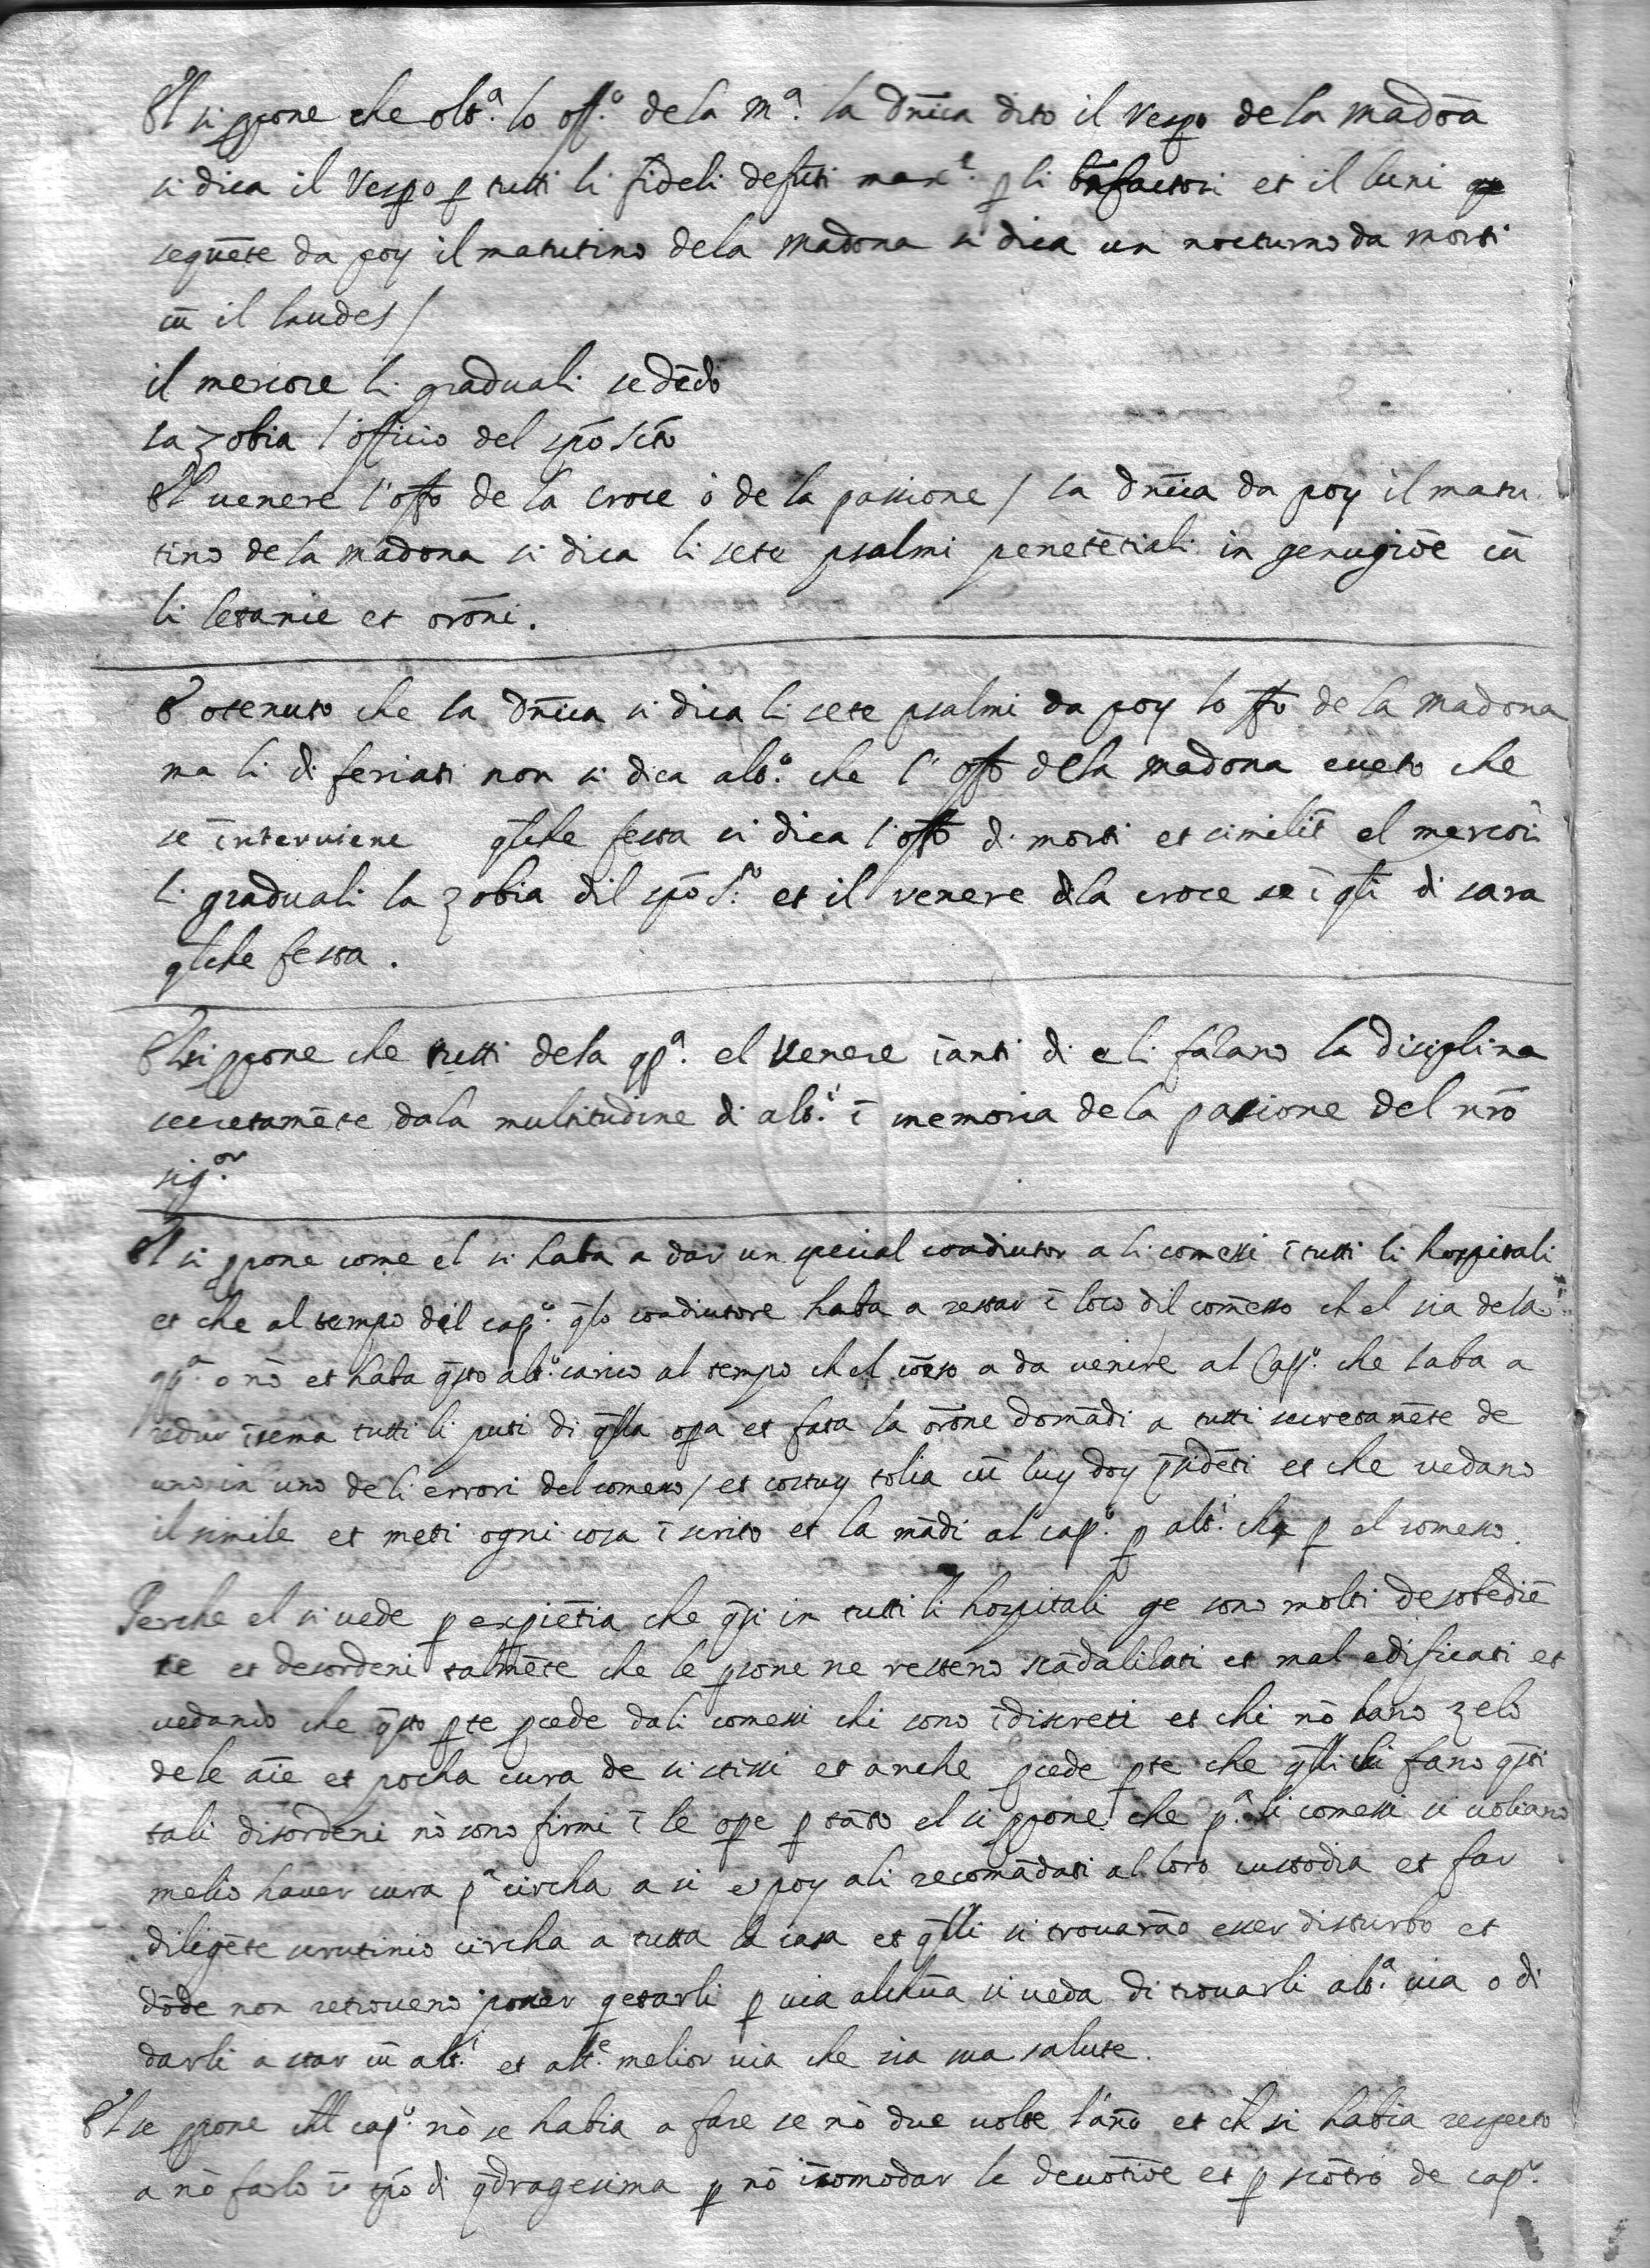 El si ppone che olt.a lo off.o de la M.a la dnica dito il vespo de la madoa
si dica il vespo p tutti li fideli defuti max.e p li bnfactori et il luni
seguete da poy il matutino dela Madona si dica un nocturno da morti
cu il laudes /
il mercore li graduali sededo
la zobia l'officio del spo scto
El venere l'offo de la croce o de la passione / la dnica da poy il matu
tino dela madona si dica li sete psalmi penetetiali in genugioe cu
li letanie et oroni.
E otenuto che la dnica si dica li sete psalmi da poy lo offo de la madona
ma li di feriati non si dica alt.o che l'offo dela madona cueto che
se interviene qlche festa si dica l'offo di morti et similit el mercori
li graduali la zobia dil spo s.to et il venere dila croce se i qli di sara
qlche festa.
El si ppone che tutti dela qp.a el venere ianti di e li falano la disciplina
secretamete dala multitudine di alt.i i memoria de la pasione del nro
sig.or
El si ppone come el si haba a dar un special coadiutor a li comessi i tutti li hospitali
et che al tempo del cap.o qlo coadiutore haba a restar i loco dil comesso ch el sia dela
qp.a o no et haba qsto alt.o carico al tempo ch el coeso a da venire al Cap.o che laba a
redur isema tutti li puti di qlla opa et fata la orone domadi a tutti secretamete de
uno in uno deli errori del comesso / et costuy tolia cu luy doy psideti et che vedano
il simile et meti ogni cosa i scrito et la madi al cap.o p alt.i che p el comesso.
Perche el si vede p expietia che qsi in tutti li hospitali ge sono molti desobedie
tie et desordeni talmete che le psone ne resteno scadalilati et mal edificati et
vedando che qsto pte pcede dali comessi chi sono idiscreti et chi no hano zelo
dele aie et pocha cura de si stissi et anche pcede pte che qlli chi fano qsti
tali disordeni no sono firmi i le ope p tato el si ppone che p.a li comessi si voliano
melio haver cura p.a circha a si e poy ali recomadati al loro custodia et far
diligete scrutinio circha a tutta la casa et qlli si trovarao esser disturbo et
dode non retroveno poter qetarli p via alchua si veda di trovarli alt.a via o di
darli a star cu alt.i et alt.e melior via che sia sua salute.
El se ppone chel cap.o no se habia a fare se no due volte l'ano et ch si habia respecto
a no farlo i tpo di qdragesima p no icomodar le devotioe et p scotro de cap.o